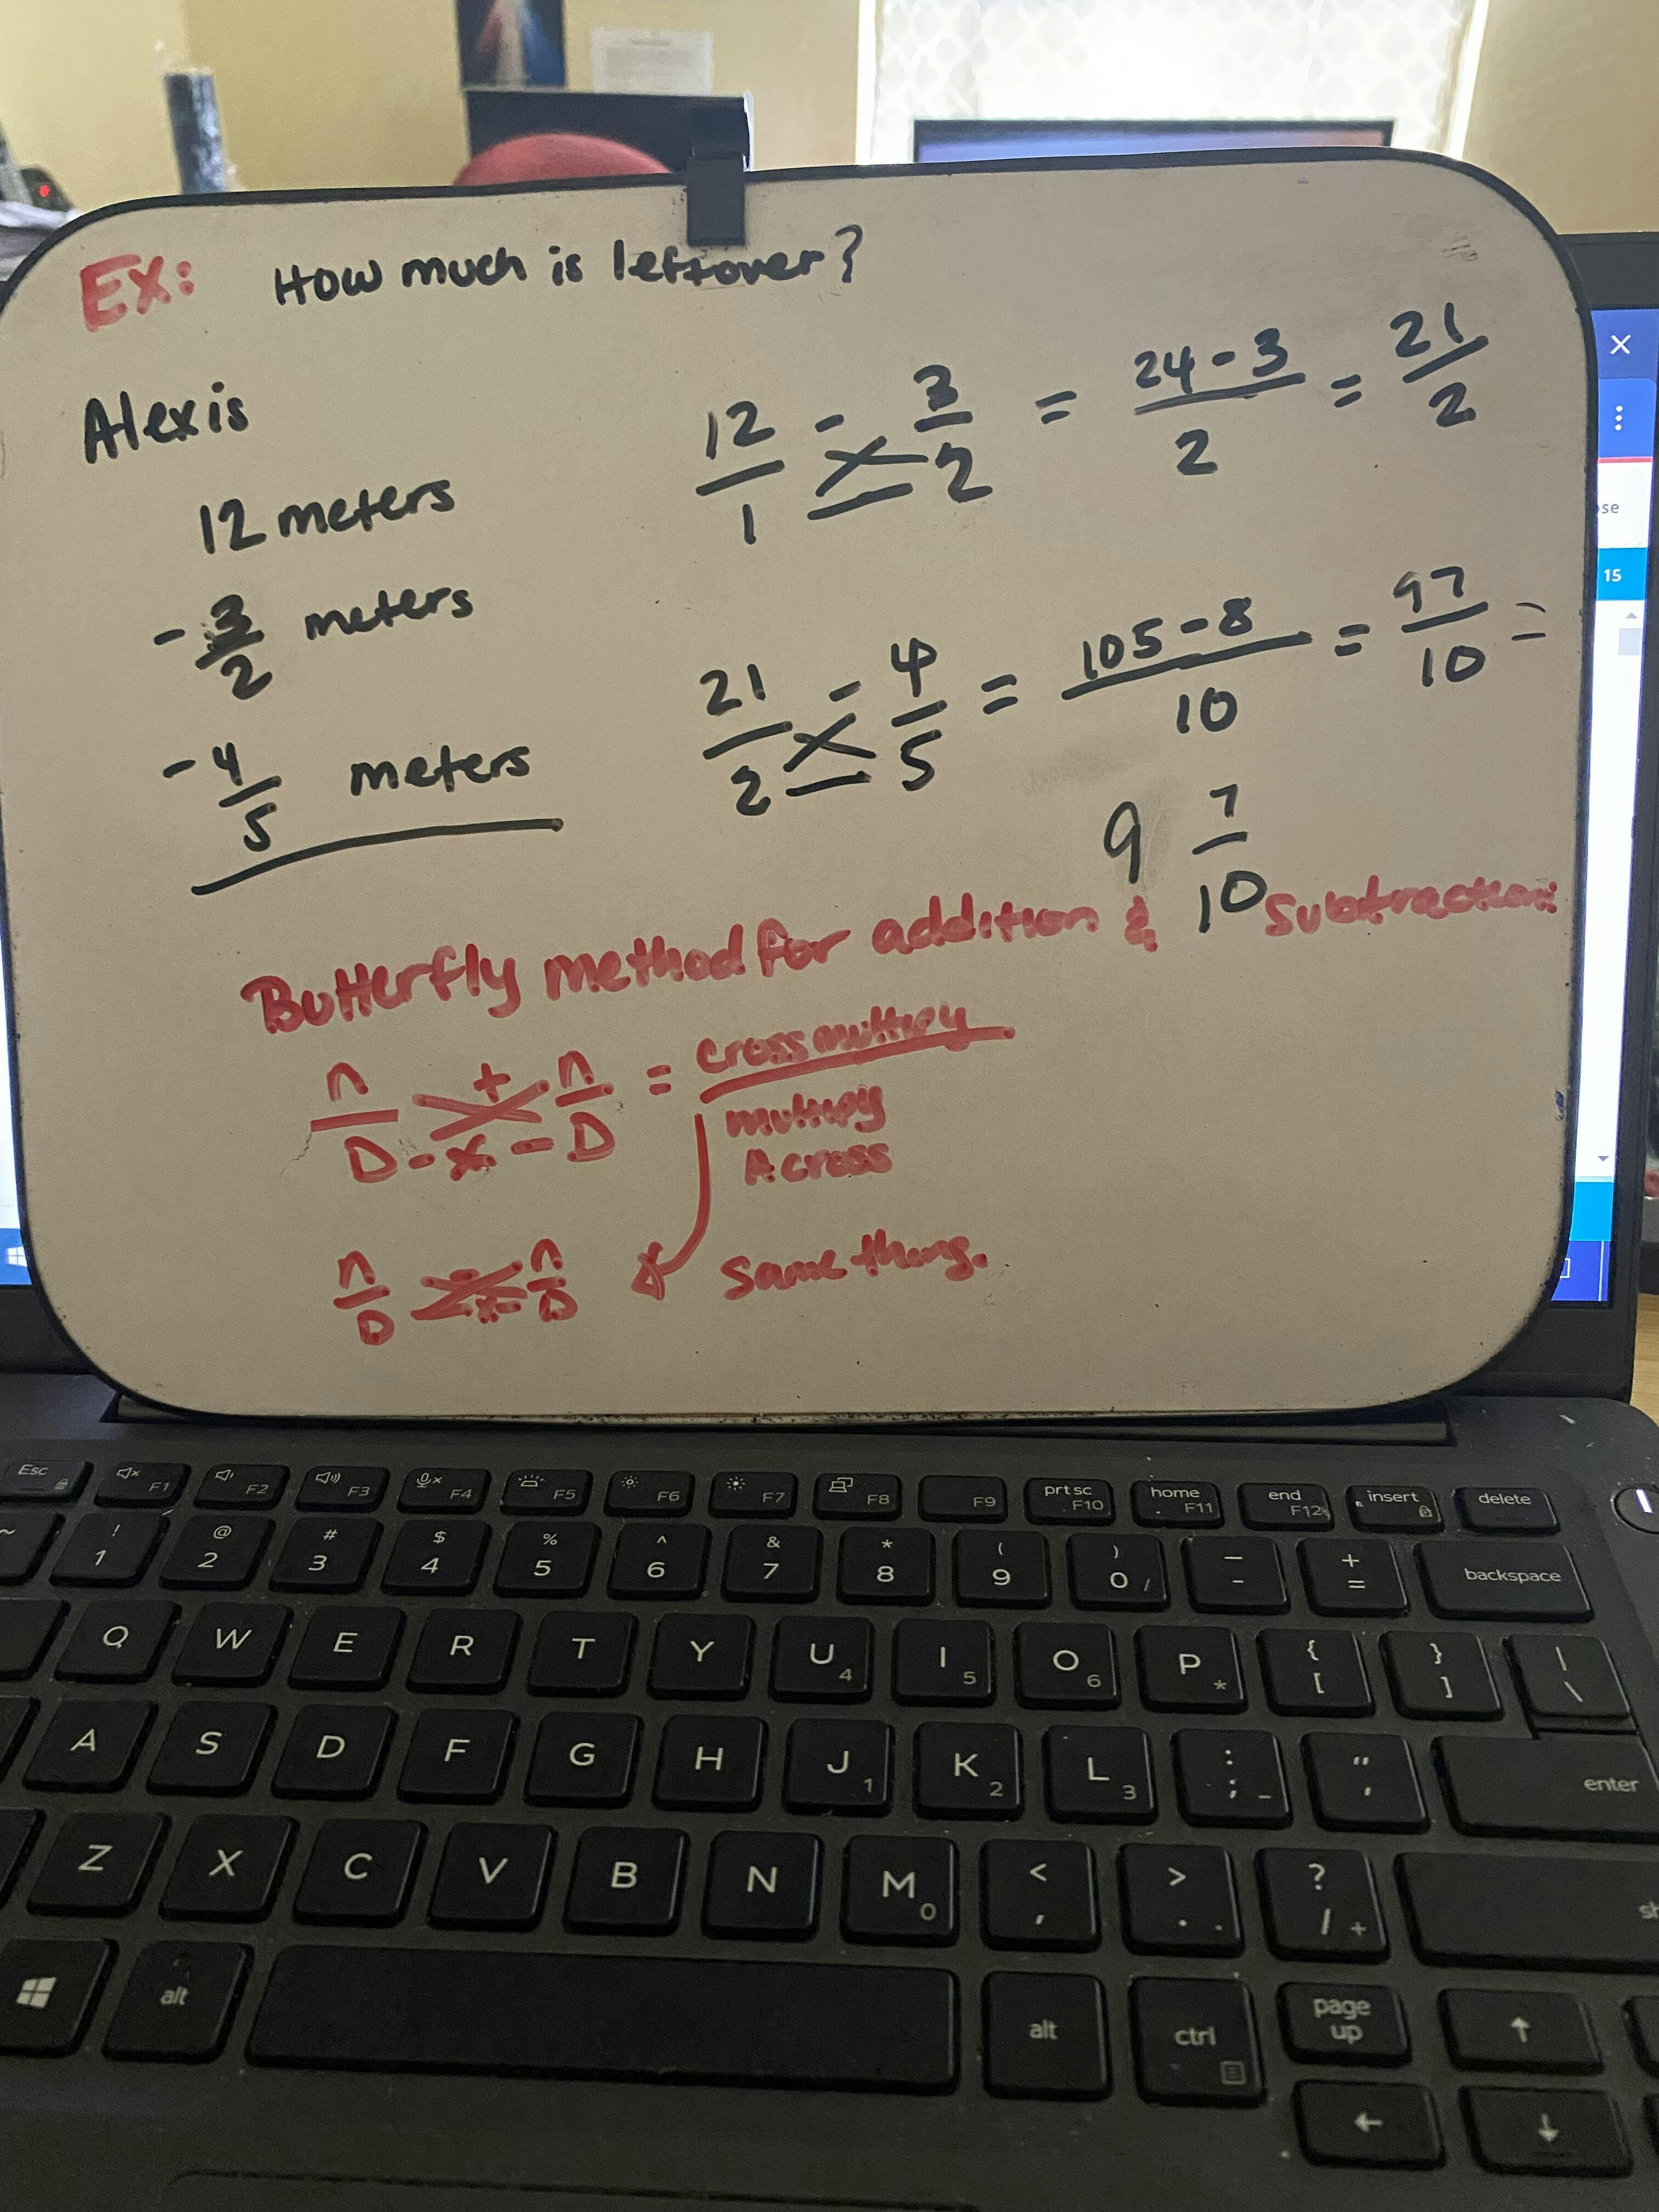 EX: How much is leftover?
Alexis
12 meters
- 3/2 meters
- 4/5 meters
12/1 - 3/2 = 24-3/2 = 21/2
21/2 - 4/5 = 105-8/10 = 97/10 =
9 7/10
Butterfly method for addition & Subtraction:
n/D + n/D = cross multiply
D - x - D
multiply
Across
n/D - n/D same thing.
x
ose
15
Esc F1 F2 F3 F4 F5 F6 F7 F8 F9 prt sc F10 home F11 end F12 insert delete
~ ! 1 @ 2 # 3 $ 4 % 5 ^ 6 & 7 * 8 ( 9 ) 0 / — - + = backspace
Q W E R T Y U 4 I 5 O 6 P * { [ } ] | \
A S D F G H J 1 K 2 L 3 : ; - " ' enter
Z X C V B N M 0 < , > . . ? / + sh
alt alt ctrl page up